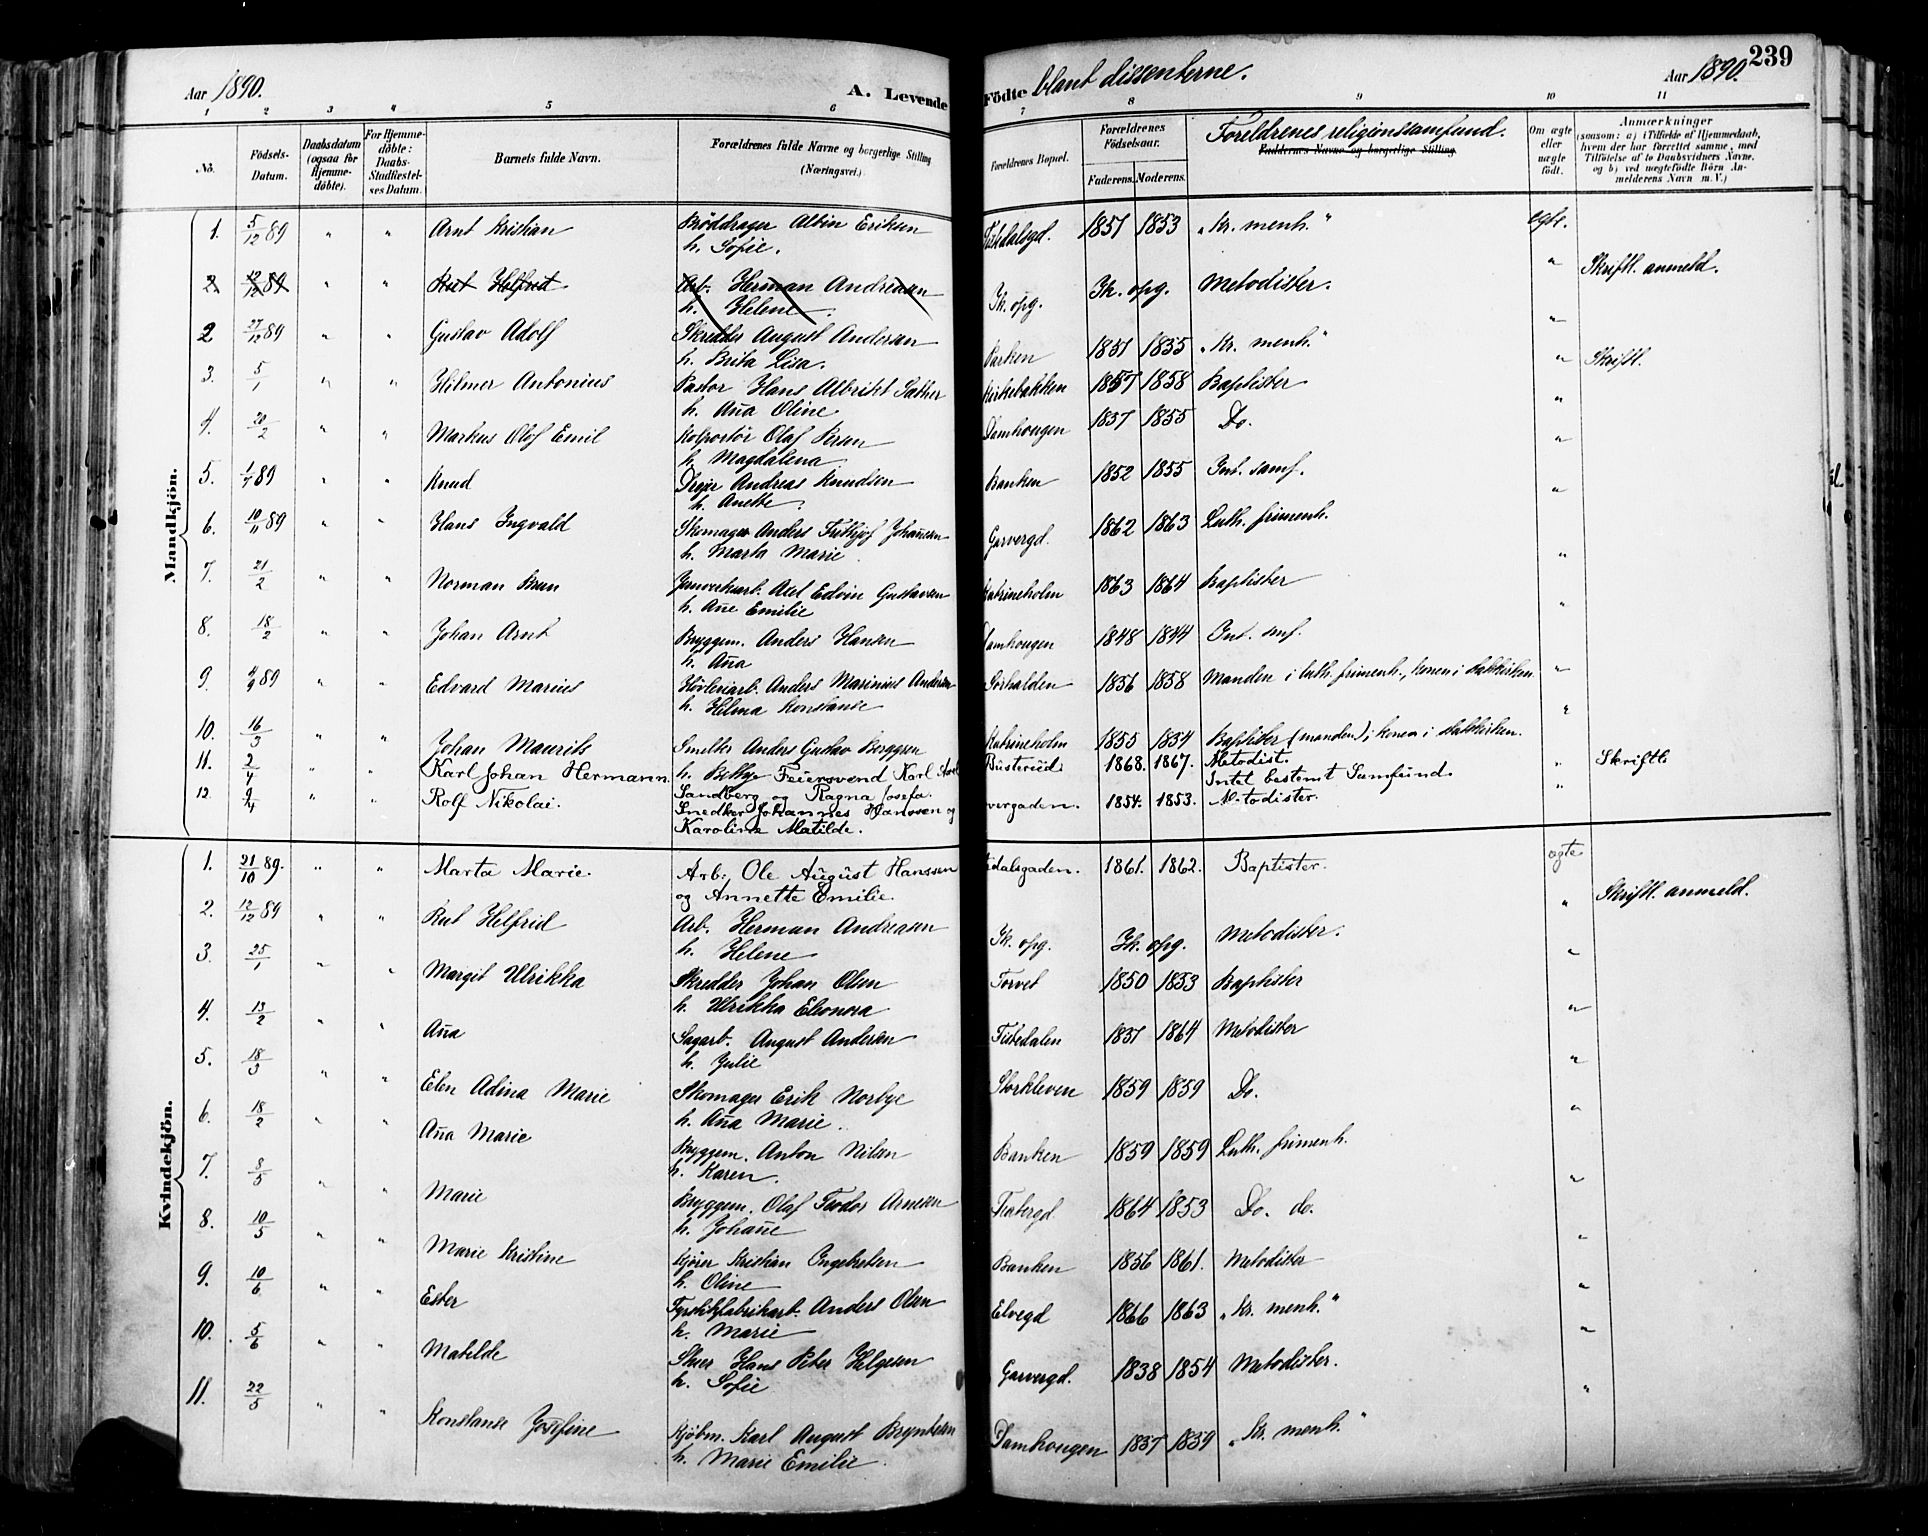 239
Aar 1890.
A. Levende Födte blant dissenterne.
Aar 1890.
1 2 3 4 5 6 7 8 9 10 11
No. Födsels-Datum. Daabsdatum (ogsaa for Hjemmedøbte). For Hjemmedøbte: Daabs-Stadfæstelses Datum. Barnets fulde Navn. Forældrenes fulde Navne og borgerlige Stilling (Næringsvei.) Forældrenes Bopæl. Forældrenes Födselsaar. Faderens. Moderens. Foreldrenes religionssamfund. Faddernes Navne og borgerlige Stilling. Om ægte eller uægte født. Anmærkninger (saasom: a) i Tilfælde af Hjemmedaab, hvem der har forrettet samme, med Tilføielse af to Daabsvidners Navne, og b) ved uægtefødte Børn Anmelderens Navn m. V.)
Mandkjön.
1. 5/12 89 " " Arnt Kristian Brøddrager Albin Eriksen Tistedalsgd. 1851 1853 "Kr. menh." egte.
h. Sofie.
2. 12/12 89 " " Rut Helfrid Arb. Herman Andreasen Ik. opg. Ik. opg. Metodister. " Skriftl. anmeld.
h. Helene
2 27/12 89 " " Gustav Adolf Skredder August Andersen Banken 1851 1855 "Kr. menh." "
h. Brita Lisa.
3. 5/1 " " Hilmer Antonius Pastor Hans Albrikt Sæther Kirkebakken 1857 1858 Baptister " Skriftl.
h. Aña Oline
4. 20/2 " " Markus Olof Emil Kolportør Olaf Persen Damhougen 1857 1855 Do. "
h. Magdalena
5. 1/7 89 " " Knud Dreier Andreas Knudsen Banken 1852 1855 Int. samf. "
h. Anette.
6. 10/11 89 " " Hans Ingvald Skomager Anders Fritjof Johañesen Garvergd. 1862 1863 Luth. frimenh. "
h. Marta Marie
7. 21/2 " " Norman Brun Jernverksarb. Axel Edvin Gustavsen Katrineholm 1863 1864 Baptister "
h. Añe Emilie
8. 18/2 " " Johan Arnt Byggem. Anders Hansen Damhougen 1848 1844 Int. smf. "
h. Aña
9. 4/9 89 " " Edvard Marius Høvleriarb. Anders Marinius Andersen Sørhalden 1856 1858 Manden i luth. frimenh., konen i statskirken. "
h. Helma Konstanse
10. 16/3 " " Johan Maurits Smelter Anders Gustav Berggren Katrineholm 1855 1854 Baptister (manden), konen i statskirken. "
h. Betty
11. 2/4 " " Karl Johan Hermann. Feiersvend Karl Axel Busterud. 1868. 1867. Metodist. Intet bestemt Samfund. " Skriftl.
Sandberg og Ragna Josefa.
12. 9/4 " " Rolf Nikolai. Snedker Johannes Hanssen og vergaden. 1854. 1853. Metodister. "
Karoline Matilde.
Kvindekjön.
1. 21/10 89. " " Marta Marie. Arb. Ole August Hanssen dalsgaden. 1861. 1862. Baptister. ægte
og Annette Emilie.
2. 12/12 89 " " Rut Helfrid Arb. Herman Andreasen Ik. opg. Ik. opg. Metodister. " Skriftl. anmeld.
h. Helene
3. 25/1 " " Margit Ulrikka Skredder Johan Olsen Torvet 1850 1853 Baptister "
h. Ulrikka Eleonora
4. 13/2 " " Aña Sagarb. August Andersen Tistedalen 1851 1864 Metodister "
h. Julie
5. 18/3 " " Elen Adina Marie Skomager Erik Norbye Storkleven 1859 1859 Do. "
h. Aña Marie.
6. 18/2 " " Aña Marie Byggem. Anton Nilsen Banken 1859 1859 Luth. frimenh. "
h. Karen.
7. 8/5 " " Marie Byggem. Olaf Teodor Arnesen Fiskergd. 1864 1853 Do. do. "
h. Johañe
8. 10/5 " " Marie Kristine Kjører Kristian Ingebretsen Banken 1856 1861. Metodister "
h. Oline
9. 10/6 " " Ester Fyrstikfabrikarb. Anders Olsen Elvegd 1866 1863 "Kr. menh." "
h. Marie
10. 5/6 " " Matilde Skrer Hans Peter Helgesen Garvergd. 1838 1854 Metodister. "
h. Sofie
11. 22/5 " " Konstanse Josefine Kjøbm. Karl August Bryntesen Damhougen 1857 1859 "Kr. menh." "
h. Marie Emilie.